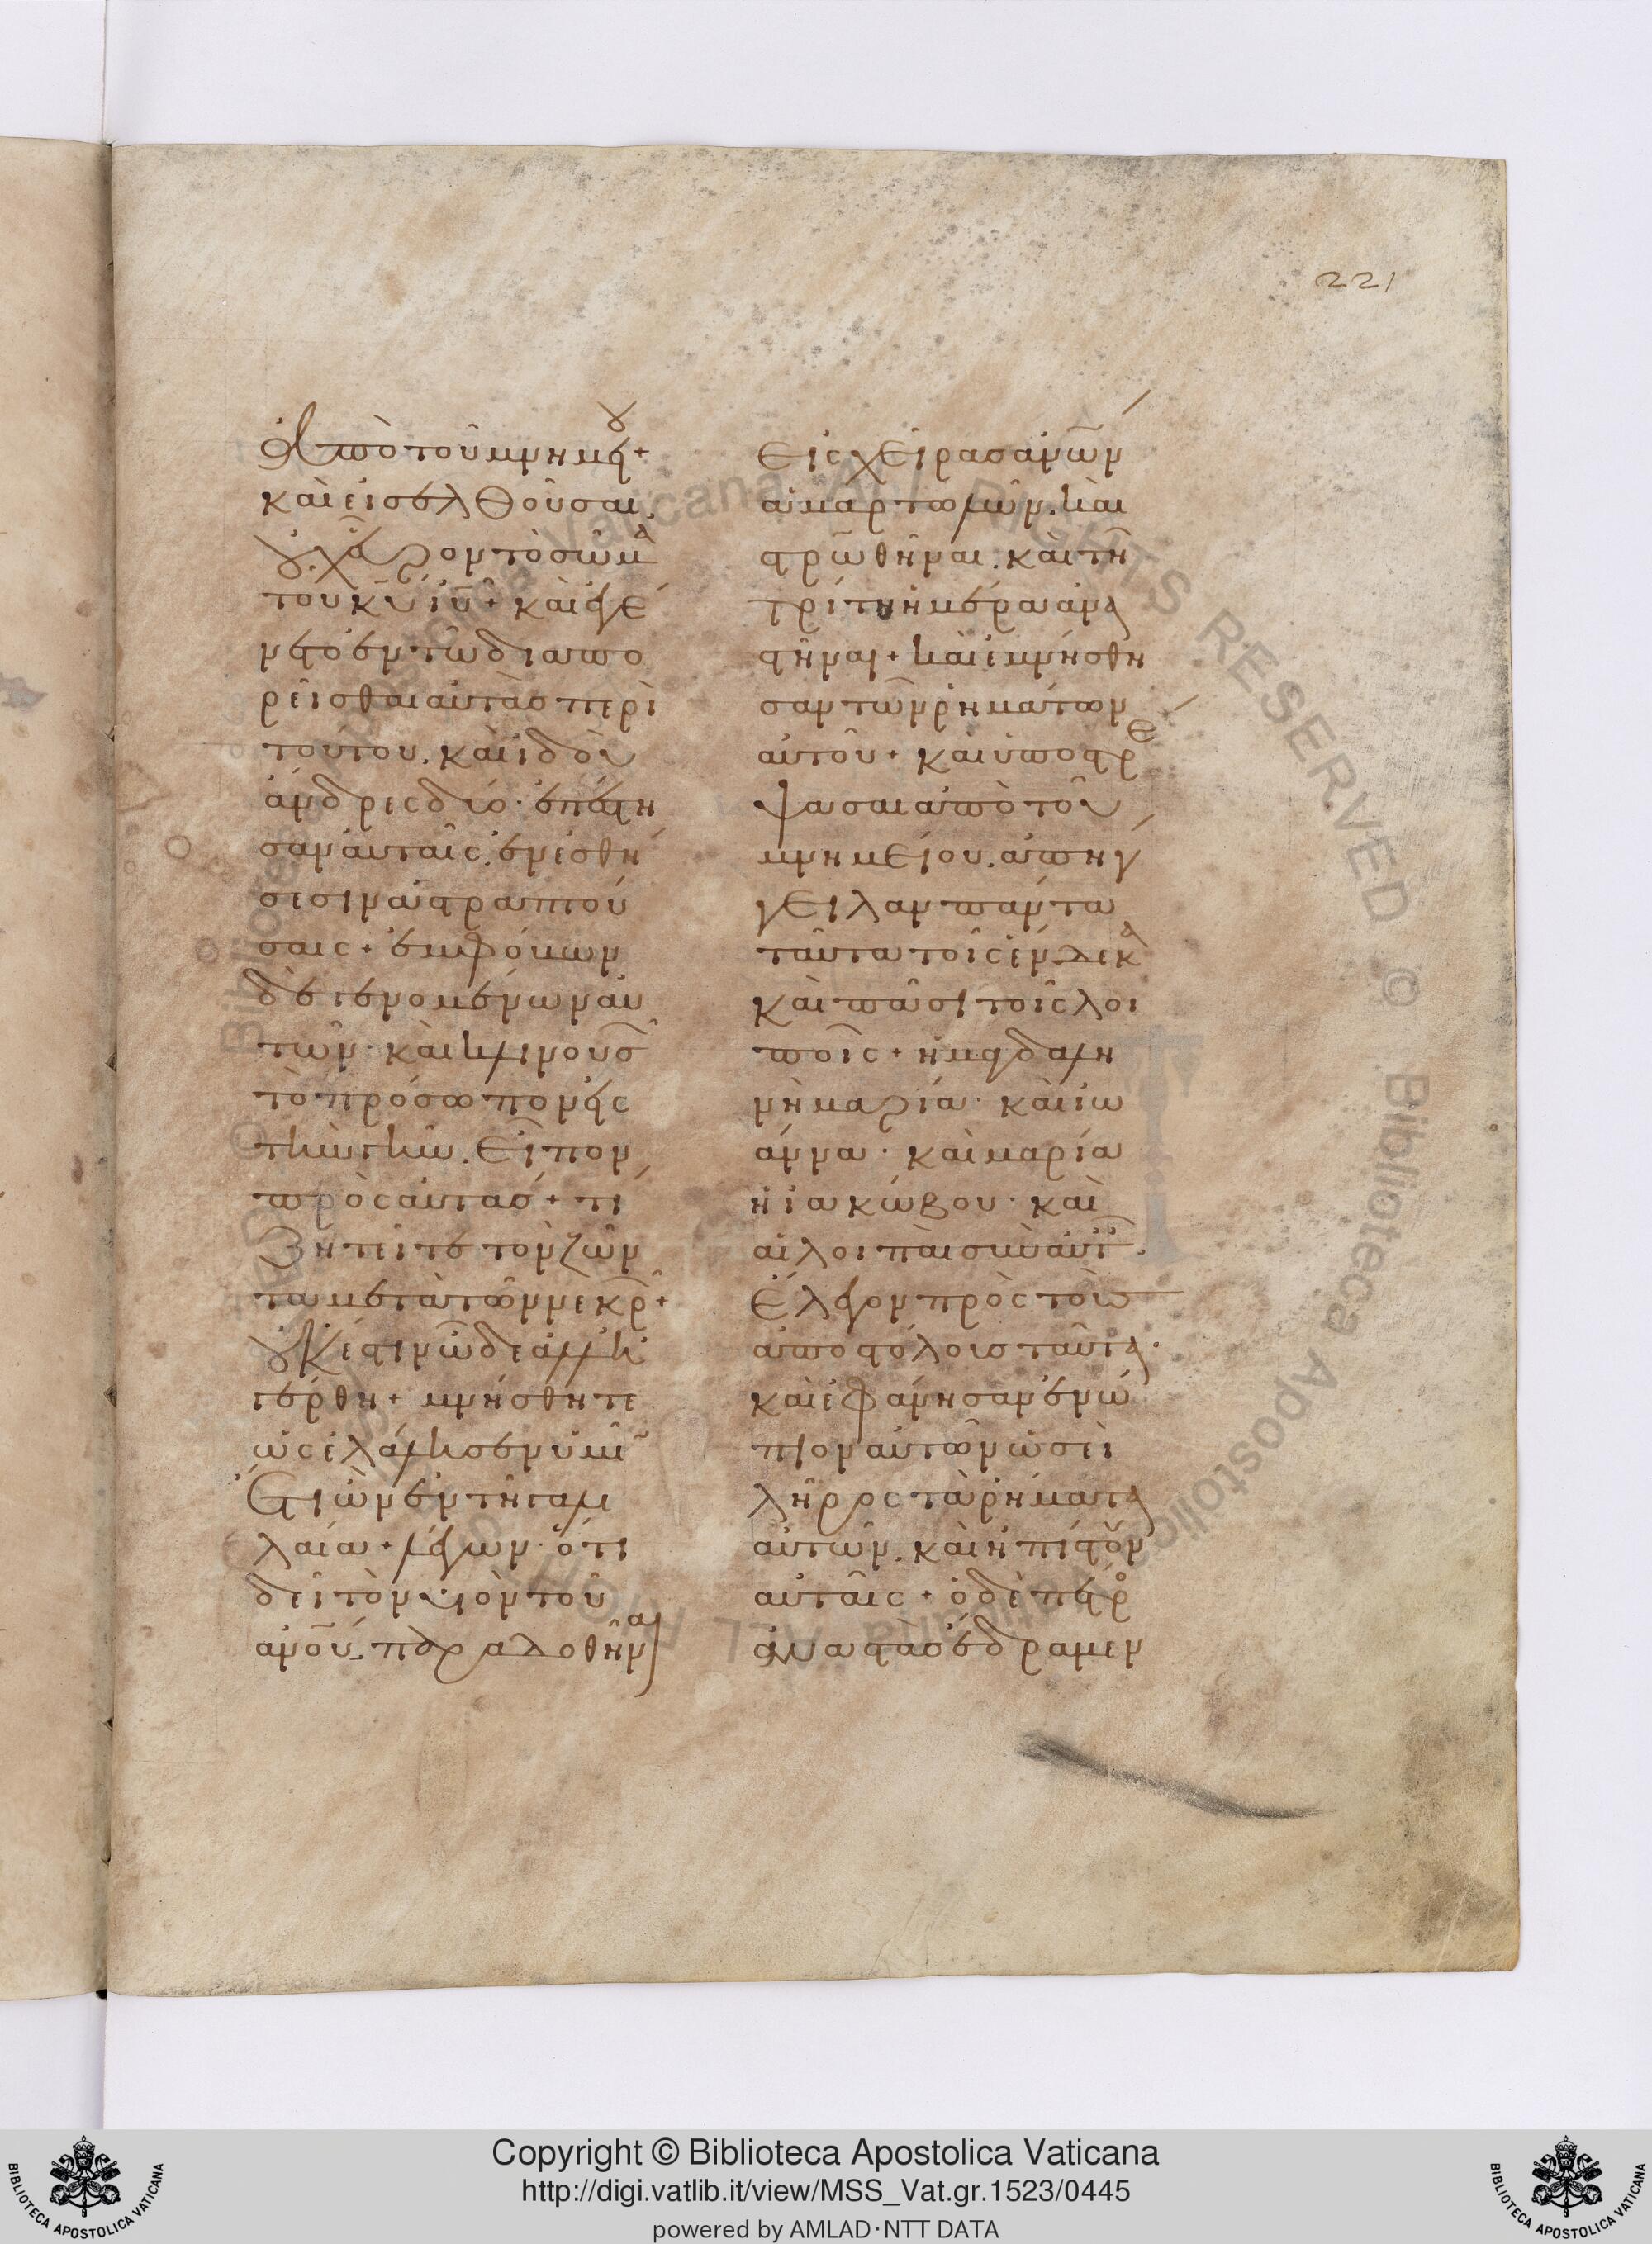 221
ἀπὸ τοῦ μνημείου+
καὶ εἰσελθοῦσαι.
οὐχ εὗρον τὸ σῶμα
του κυ ιυ+ καὶ ἐγέ
νετο ἐν τῶ διαπο
ρεῖσθαι αὐτὰς περὶ
τούτου. καὶ ἰδοὺ
ἄνδρες δύο· ἐπέστη
σαν αὐταῖς. ἐν ἐσθή
σεσιν ἀστραπτού
σαις+ ἐμφόβων
δὲ γενομένων αὐ
τῶν· καὶ κλινουσῶν
τὸ πρόσωπον εἰς
τὴν γῆν. εἶπον
πρὸς αὐτάς+ τί
ζητεῖτε τὸν ζῶν
τα μετὰ τῶν νεκρῶν+
οὐκ ἔστιν ὧδε ἀλλ' ἠ
γέρθη+ μνήσθητε
ὡς ἐλάλησεν ὑμῖν
ἔτι ὢν ἐν τῆ γαλι
λαία+ λέγων· ὅτι
δεῖ τὸν υἱὸν τοῦ
ανου. παραδοθῆναι
εἰς χεῖρας ανων
ἁμαρτωλῶν. καὶ
στρωθῆναι. καὶ τῆ
τρίτη ἡμέρα ἀνα
στῆναι+ καὶ ἐμνήσθη
σαν τῶν ῥημάτων
αὐτοῦ+ καὶ ὑποστρέ
ψασαι ἀπὸ τοῦ
μνημείου. ἀπήγ
γειλαν πάντα
ταῦτα τοῖς ἕνδεκα
καὶ πᾶσι τοῖς λοι
ποῖς+ ἡ μαγδαλη
νὴ μαρία· καὶ ἰω
άννα· καὶ μαρία
ἡ ἰακώβου· καὶ
αἱ λοιπαὶ σὺν αὐταῖς.
ἔλεγον πρὸς τοὺς
ἀποστόλους ταῦτα·
καὶ ἐφάνησαν ἐνώ
πιον αὐτῶν ὡσεὶ
λῆρος τὰ ῥήματα
αὐτῶν. καὶ ἠπίστουν
αὐταῖς+ ὁ δὲ πέτρος
ἀναστὰς ἔδραμεν
Copyright © Biblioteca Apostolica Vaticana
http://digi.vatlib.it/view/MSS_Vat.gr.1523/0445
powered by AMLAD·NTT DATA
BIBLIOTECA APOSTOLICA VATICANA
BIBLIOTECA APOSTOLICA VATICANA